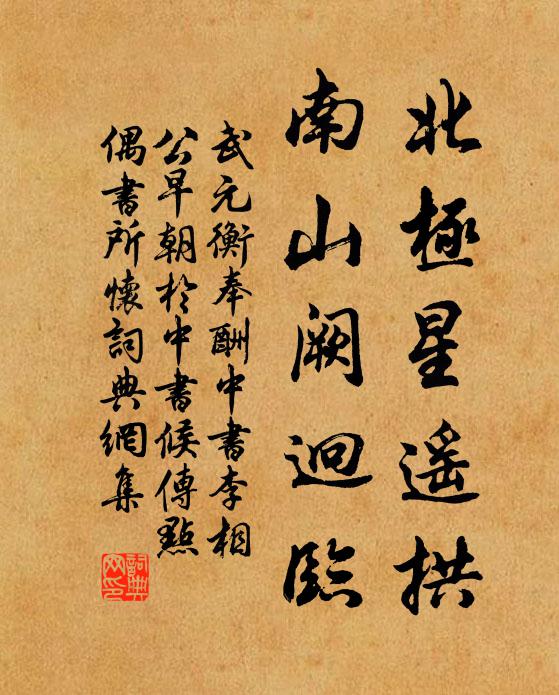 北極星遥拱
南山阙迥臨
武元衡奉酬中書李相
公早朝於中書候傳點
偶書所懷詞典網集
詞典网印